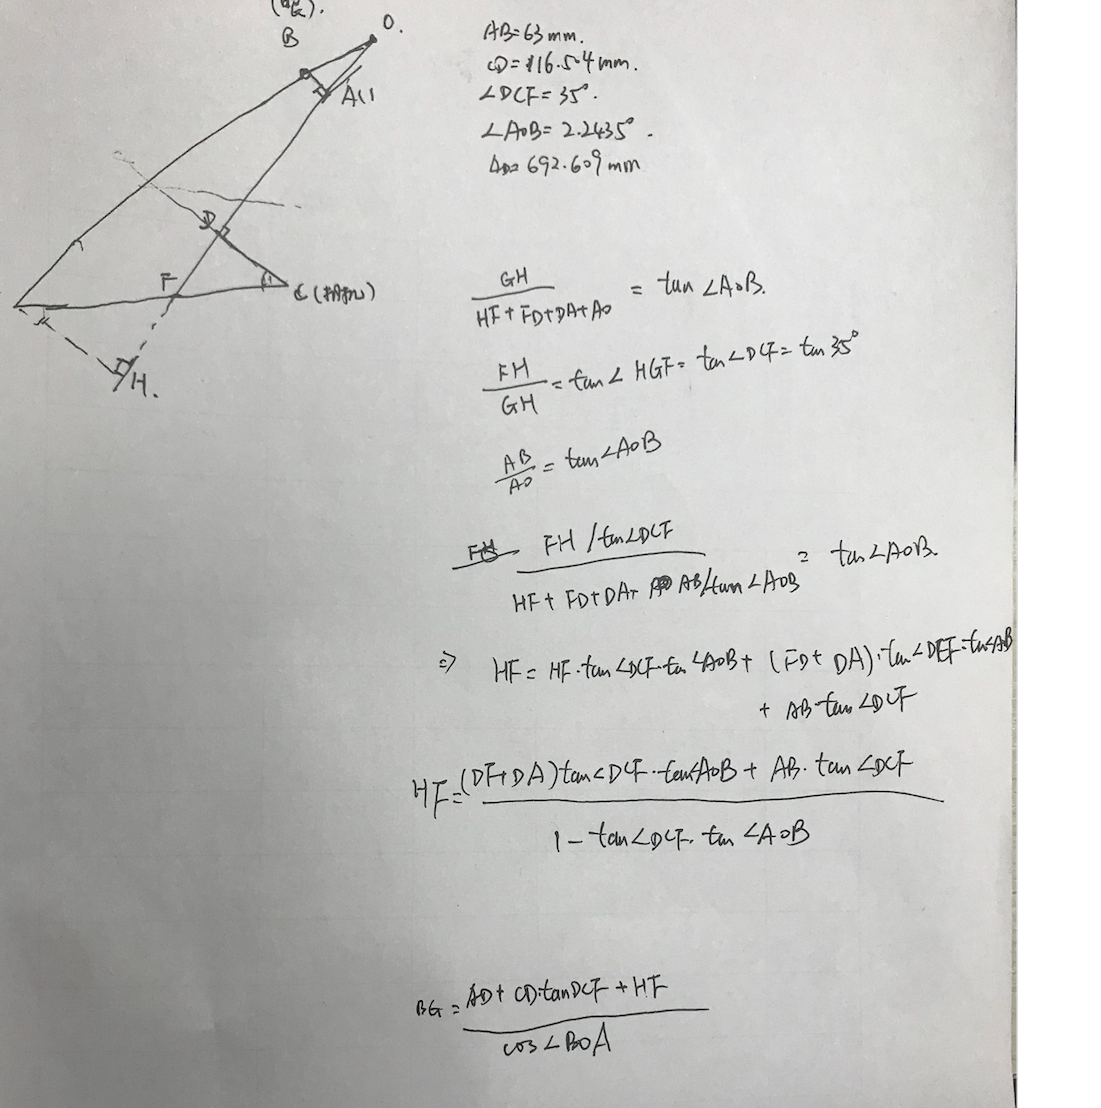 B
O.
A(1
D
F
C
H.
AB=63mm.
CD=116.54mm.
∠DCF=35°.
∠AOB=2.2435°.
AD=692.609mm
GH / HF+FD+DA+AO = tan∠AOB.
FH / GH = tan∠HGF=tan∠DCF=tan35°
AB / AO = tan∠AOB
FH/tan∠DCF / HF+FD+DA+AB/tan∠AOB = tan∠AOB.
⇒ HF=HF·tan∠DCF·tan∠AOB+(FD+DA)·tan∠DEF·tan∠AOB
+AB·tan∠DCF
HF=(DF+DA)tan∠DCF·tan∠AOB+AB·tan∠DCF / 1-tan∠DCF·tan∠AOB
BG=AD+CD·tanDCF+HF / cos∠BOA